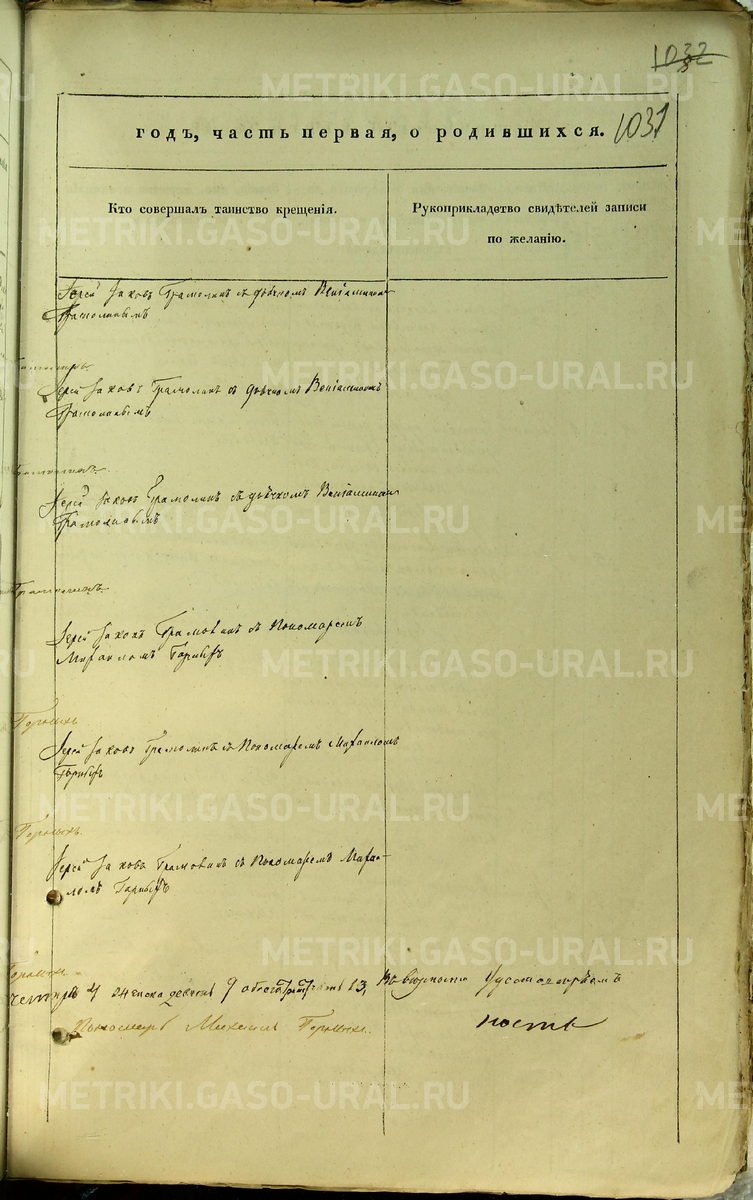 1032
годъ, часть первая, о родившихся. 1031
Кто совершалъ таинство крещенія.
Рукоприкладство свидѣтелей записи
по желанію.
Іерей Іаковъ Грамолинъ съ дьячкомъ Веніаминомъ
Грамолинымъ
Іерей Іаковъ Грамолинъ съ дьячкомъ Веніаминомъ
Грамолинымъ
Іерей Іаковъ Грамолинъ съ дьячкомъ Веніаминомъ
Грамолинымъ
Іерей Іаковъ Грамолинъ съ Пономаремъ
Михаиломъ Горныхъ
Горныхъ
Іерей Іаковъ Грамолинъ съ Пономаремъ Михаиломъ
Горныхъ
Горныхъ
Іерей Іаковъ Грамолинъ съ Пономаремъ Михаи-
ломъ Горныхъ
Горныхъ
четыре 4 женска девять 9 обоего 13,
Пономарь Михаилъ Горныхъ.
METRIKI.GASO-URAL.RU